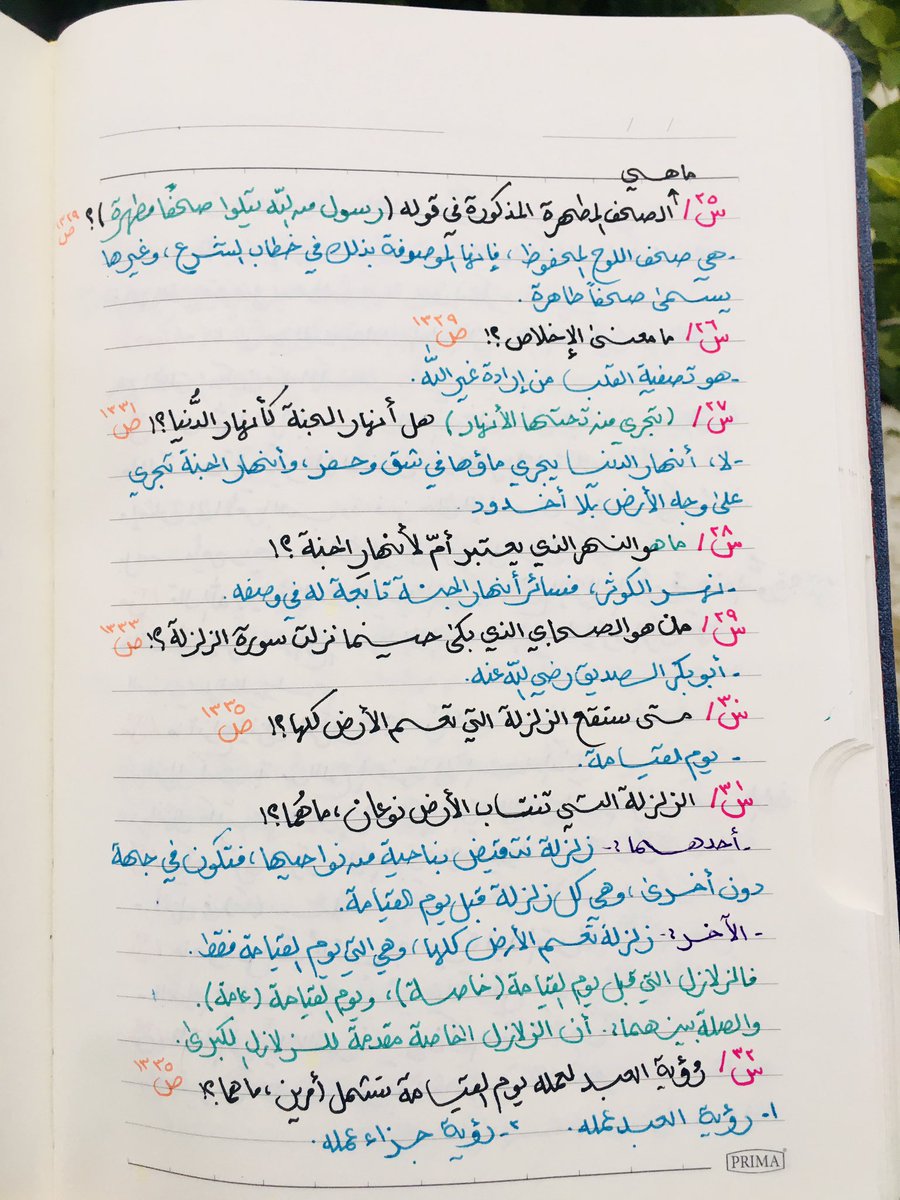 ماهي
س٢٥/ الصحف المطهرة المذكورة في قوله (رسول من الله يتلوا صحفًا مطهرة)؟ ص ١٣٢٩
- هي صحف اللوح المحفوظ، فإنها الموصوفة بذلك في خطاب الشرع، وغيرها
يسمى صحفاً طاهرة.
س٢٦/ ما معنى الإخلاص؟! ص ١٣٢٩
- هو تصفية القلب من إرادة غير الله.
س٢٧/ (تجري من تحتها الأنهار) هل أنهار الجنة كأنهار الدُّنيا؟! ص ١٣٣١
- لا، أنهار الدنيا يجري ماؤها في شق وحفر، وأنهار الجنة تجري
على وجه الأرض بلا أخدود.
س٢٨/ ماهو النهر الذي يعتبر أمّ لأنهار الجنة؟!
- نهر الكوثر، فسائر أنهار الجنة تابعة له في وصفه.
س٢٩/ من هو الصحابي الذي بكى حينما نزلت سورة الزلزلة؟! ص ١٣٣٣
- أبو بكر الصديق رضي الله عنه.
س٣٠/ متى ستقع الزلزلة التي تعم الأرض كلها؟! ص ١٣٣٥
- يوم القيامة.
س٣١/ الزلزلة التي تنتاب الأرض نوعان، ماهُما؟!
- أحدهما:- زلزلة تختص بناحية من نواحيها، فتكون في جهة
دون أخرى، وهي كل زلزلة قبل يوم القيامة.
- الآخر:- زلزلة تَعم الأرض كلها، وهي التي يوم القيامة فقط.
فالزلازل التي قبل يوم القيامة (خاصة)، ويوم القيامة (عامة).
والصلة بينهما: أن الزلازل الخاصة مقدمة للزلازل الكبرى.
س٣٢/ رؤية العبد لعمله يوم القيامة تشمل أمرين، ماهما؟! ص ١٣٣٥
١- رؤية العبد عمله. ٢- رؤية جزاء عمله.
PRIMA